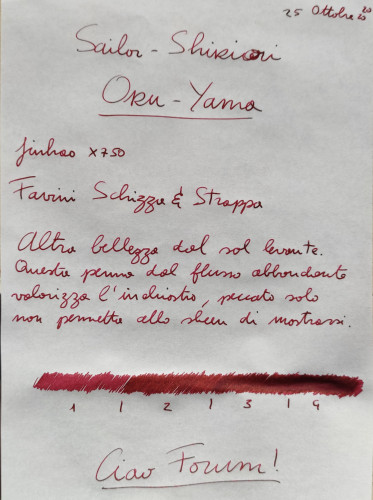 25 Ottobre 2020
Sailor - Shikiori
Oku - Yama
Jinhao x750
Favini Schizza & Strappa
Altra bellezza dal sol levante.
Questa penna dal flusso abbondante
valorizza l'inchiostro, peccato solo
non permetta allo sheen di mostrarsi.
1 | 2 | 3 | 4
Ciao Forum!